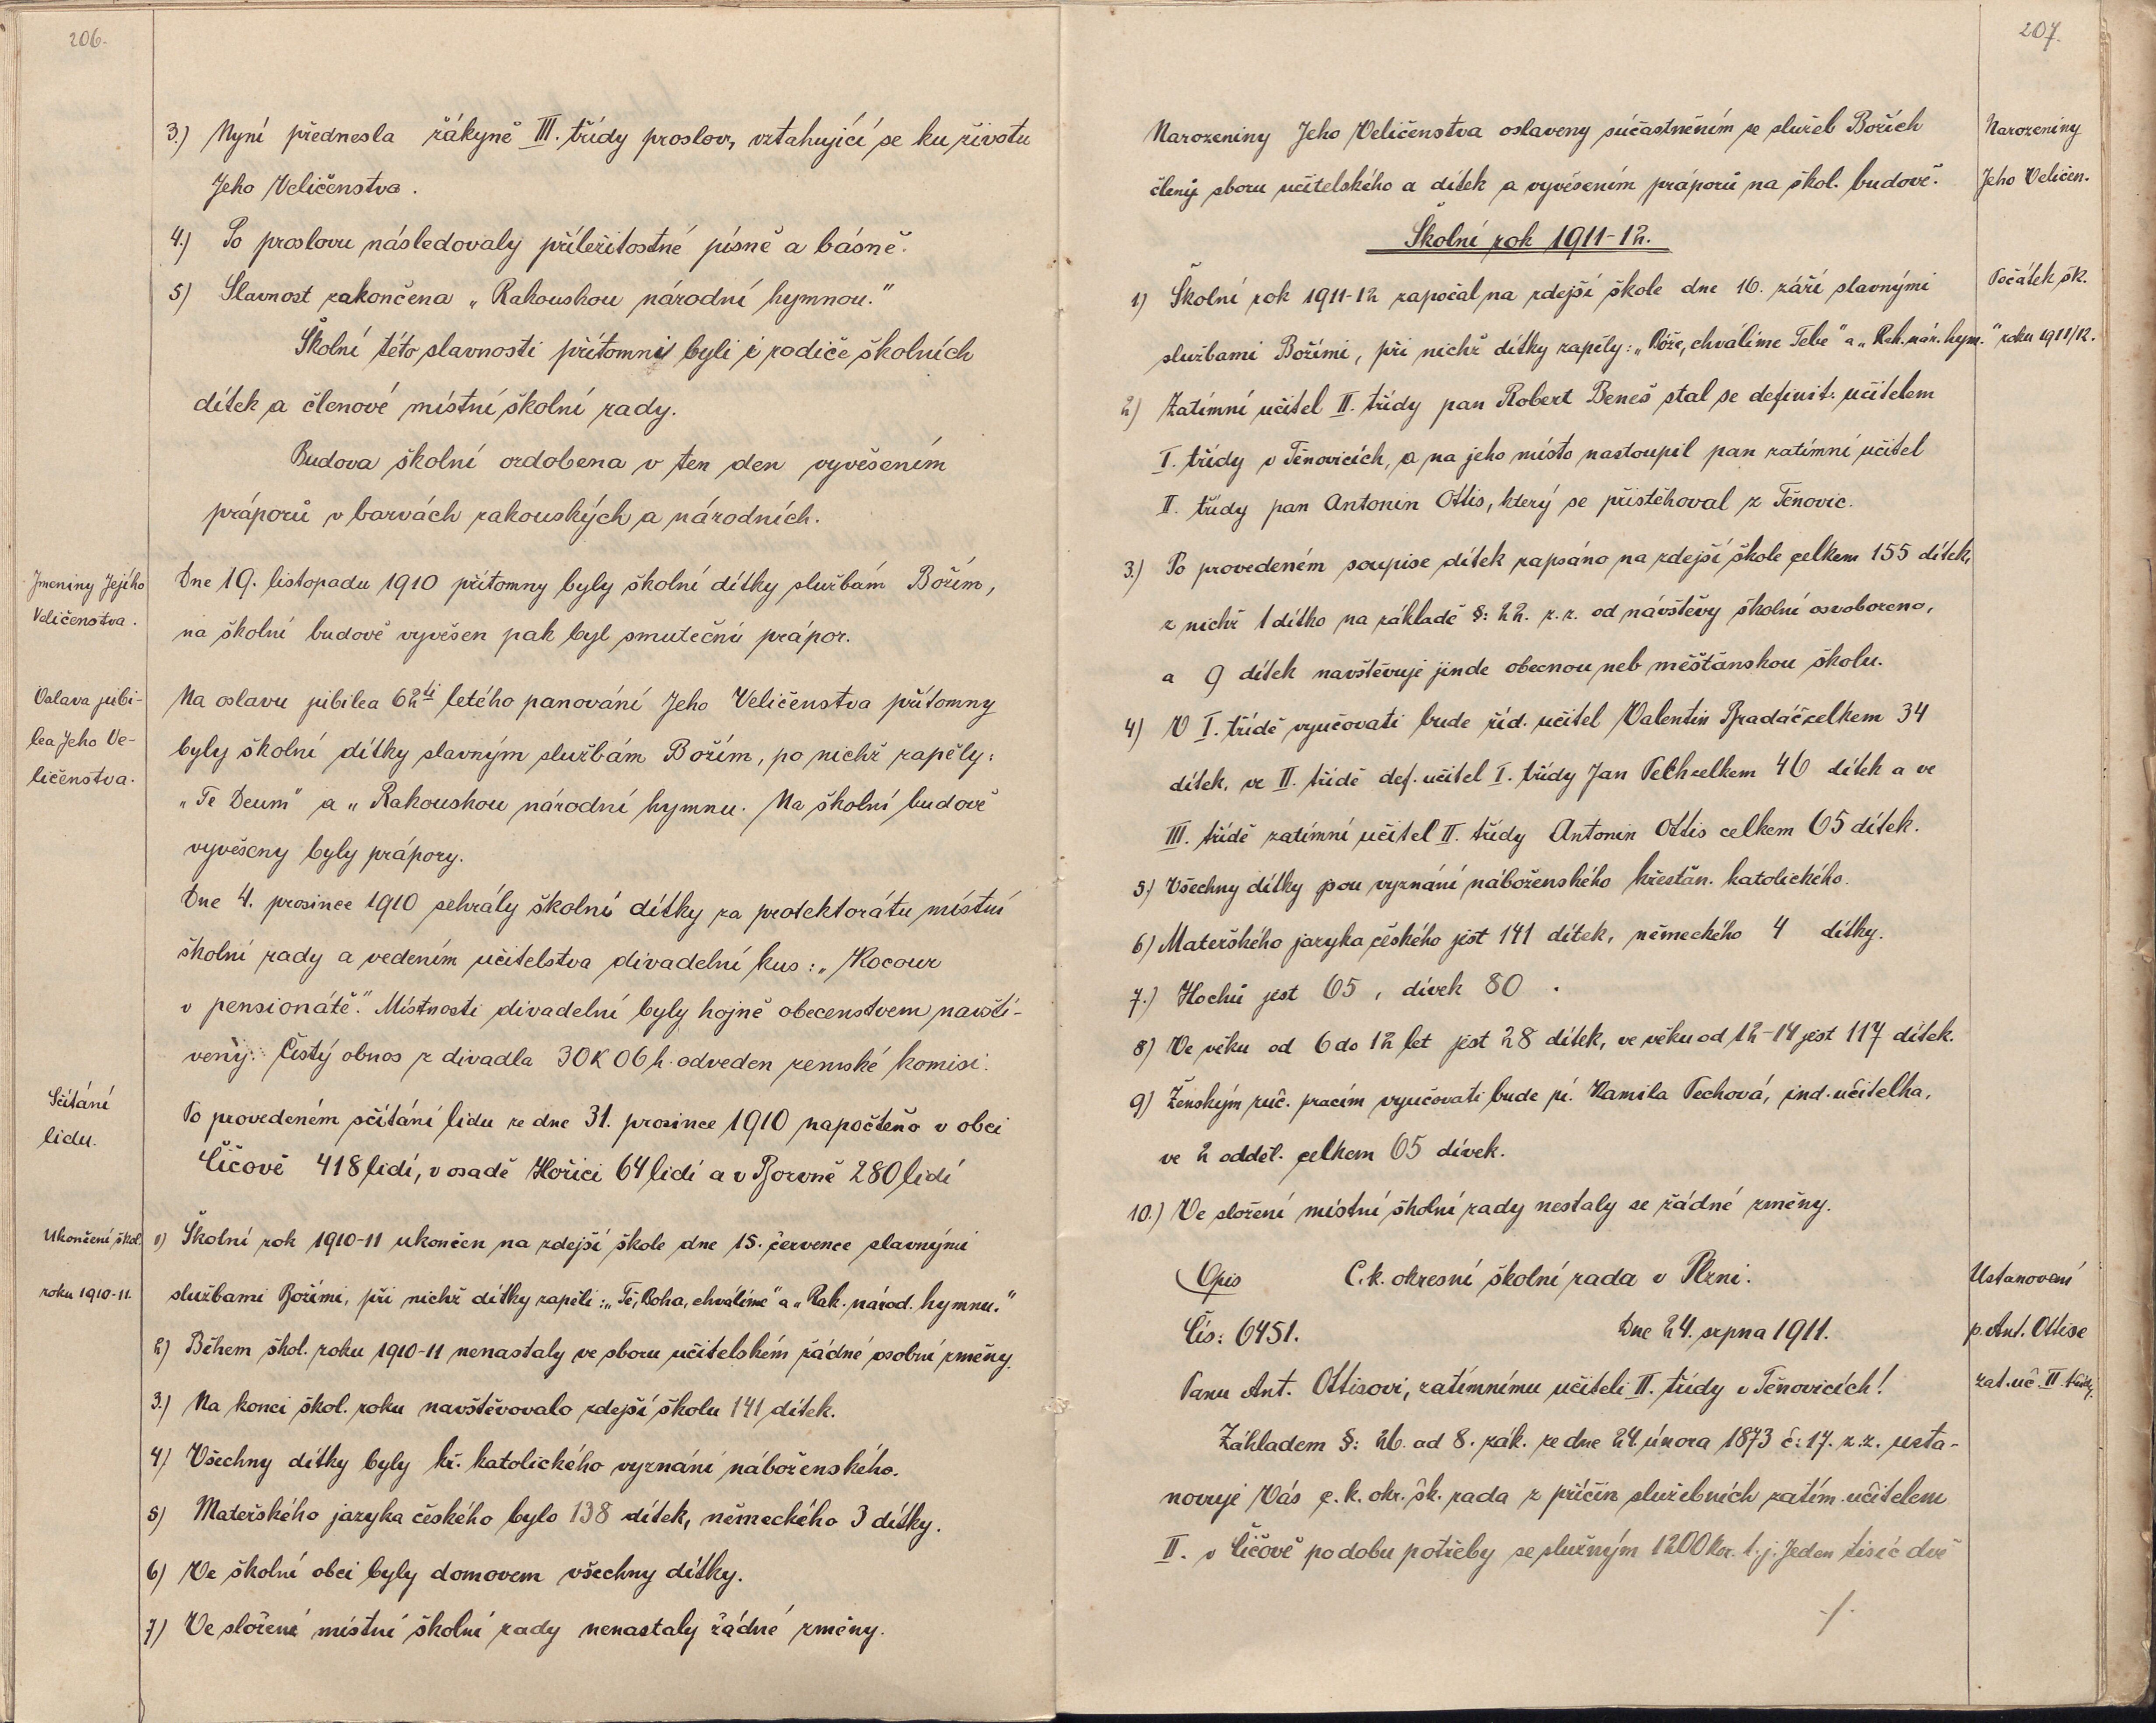 206.
3.) Nyní přednesla žákyně III. třídy proslov, vztahující se ku životu
Jeho Veličenstva.
4.) Po proslovu následovaly příležitostné písně a básně.
5) Slavnost zakončena „Rakouskou národní hymnou."
Školní této slavnosti přítomni byli i rodiče školních
dítek a členové místní školní rady.
Budova školní ozdobena v ten den vyvěšením
práporů v barvách rakouských a národních.
Jmeniny Jejího
Veličenstva.
Dne 19. listopadu 1910 přítomny byly školní dítky službám Božím,
na školní budově vyvěšen pak byl smuteční prápor.
Oslava jubi-
lea Jeho Ve-
ličenstva.
Na oslavu jubilea 62ti letého panování Jeho Veličenstva přítomny
byly školní dítky slavným službám Božím, po nichž zapěly:
„Te Deum" a „Rakouskou národní hymnu. Na školní budově
vyvěšeny byly prápory.
Dne 4. prosince 1910 sehrály školní dítky za protektorátu místní
školní rady a vedením učitelstva divadelní kus: „Kocour
v pensionátě." Místnosti divadelní byly hojně obecenstvem navští-
veny. Čistý obnos z divadla 30K 06h. odveden zemské komisi.
Sčítání
lidu.
Po provedeném sčítání lidu ze dne 31. prosince 1910 napočteno v obci
Číčově 418 lidí, v osadě Hořici 64 lidí a v Borovně 280 lidí
Ukončení škol.
roku 1910-11.
1) Školní rok 1910-11 ukončen na zdejší škole dne 15. července slavnými
službami Božími, při nichž dítky zapěli: „Tě, Boha, chválíme" a „Rak. národ. hymnu."
2) Během škol. roku 1910-11 nenastaly ve sboru učitelském žádné osobní změny.
3.) Na konci škol. roku navštěvovalo zdejší školu 141 dítek.
4) Všechny dítky byly kř. katolického vyznání náboženského.
5) Mateřského jazyka českého bylo 138 dítek, německého 3 dítky.
6) Ve školní obci byly domovem všechny dítky.
7) Ve složení místní školní rady nenastaly žádné změny.
207.
Narozeniny Jeho Veličenstva oslaveny súčastněním se služeb Božích
členy sboru učitelského a dítek a vyvěsením práporů na škol. budově.
Narozeniny
Jeho Veličen.
Školní rok 1911-12.
1) Školní rok 1911-12 započal na zdejší škole dne 16. září slavnými
službami Božími, při nichž dítky zapěly: „Bože, chválíme Tebe" a „Rak. nár. hym."
Počátek šk.
roku 1911/12.
2) Zatímní učitel II. třídy pan Robert Beneš stal se definit. učitelem
I. třídy v Těnovicích, a na jeho místo nastoupil pan zatímní učitel
II. třídy pan Antonin Ottis, který se přistěhoval z Těnovic.
3.) Po provedeném soupise dítek zapsáno na zdejší škole celkem 155 dítek,
z nichž 1 dítko na základě §: 22. z. z. od návštěvy školní osvobozeno,
a 9 dítek navštěvuje jinde obecnou neb měšťanskou školu.
4) V I. třídě vyučovati bude říd. učitel Valentin Bradáč celkem 34
dítek, ve II. třídě def. učitel I. třídy Jan Pech celkem 46 dítek a ve
III. třídě zatímní učitel II. třídy Antonin Ottis celkem 65 dítek.
5.) Všechny dítky jsou vyznání náboženského křesťan. katolického.
6) Mateřského jazyka českého jest 141 dítek, německého 4 dítky.
7.) Hochů jest 65, dívek 80.
8) Ve věku od 6 do 12 let jest 28 dítek, ve věku od 12-14 jest 117 dítek.
9) Ženským ruč. pracím vyučovati bude pí. Kamila Pechová, ind. učitelka,
ve 2 odděl. celkem 65 dívek.
10.) Ve složení místní školní rady nestaly se žádné změny.
Opis C. k. okresní školní rada v Plzni.
Čís: 6451. Dne 24. srpna 1911.
Ustanovení
p. Ant. Ottise
zat. uč. II. třídy.
Panu Ant. Ottisovi, zatímnímu učiteli II. třídy v Těnovicích!
Základem §: 26. ad 8. zák. ze dne 24. února 1873 č: 17. z. z. usta-
novuje Vás c. k. okr. šk. rada z příčin služebních zatím. učitelem
II. v Číčově po dobu potřeby se služným 1200 Kor. t. j. Jeden tisíc dvě
./.